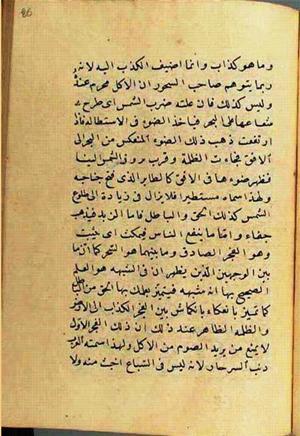 وما هو كذاب وانما اضيف الكذب اليه لانه
ربما يتوهم صاحب السحور ان الاكل محرم عنده
وليس كذلك فان علته ضرب الشمس اى طرح
شعاعها على البحر فياخذ الضوء فى الاستطالة فاذا
ارتفعت ذهب ذلك الضوء المنعكس من البحر الى
الافق فجاءت الظلمة وقرب بروز الشمس الينا
فظهر ضوءها فى الافق كالطاير الذى فتح جناحيه
ولهذا سماه مستطيرا فلا يزال فى زيادة الى طلوع
الشمس كذلك الحق والباطل فاما الزبد فيذهب
جفاء واما ما ينفع الناس فيمكث اى يثبت
وهو الفجر الصادق وما بينهما هو السحر كما ان ما
بين الوجهين الذين يظهران فى الشبهة هو العلم
الصحيح بها انه شبهة فيتميز بعلمك بها الحق من
كما تميز بانعكاء بانكماش بين الفجر الكذاب الى الارض
والظلمة الظاهر عند ذلك ان ذلك الفجر الاول
لا يمنع من يريد الصوم من الاكل ولهذا اسمته العرب
ذنب السرحان لانه ليس فى السباع اخبث منه ولا